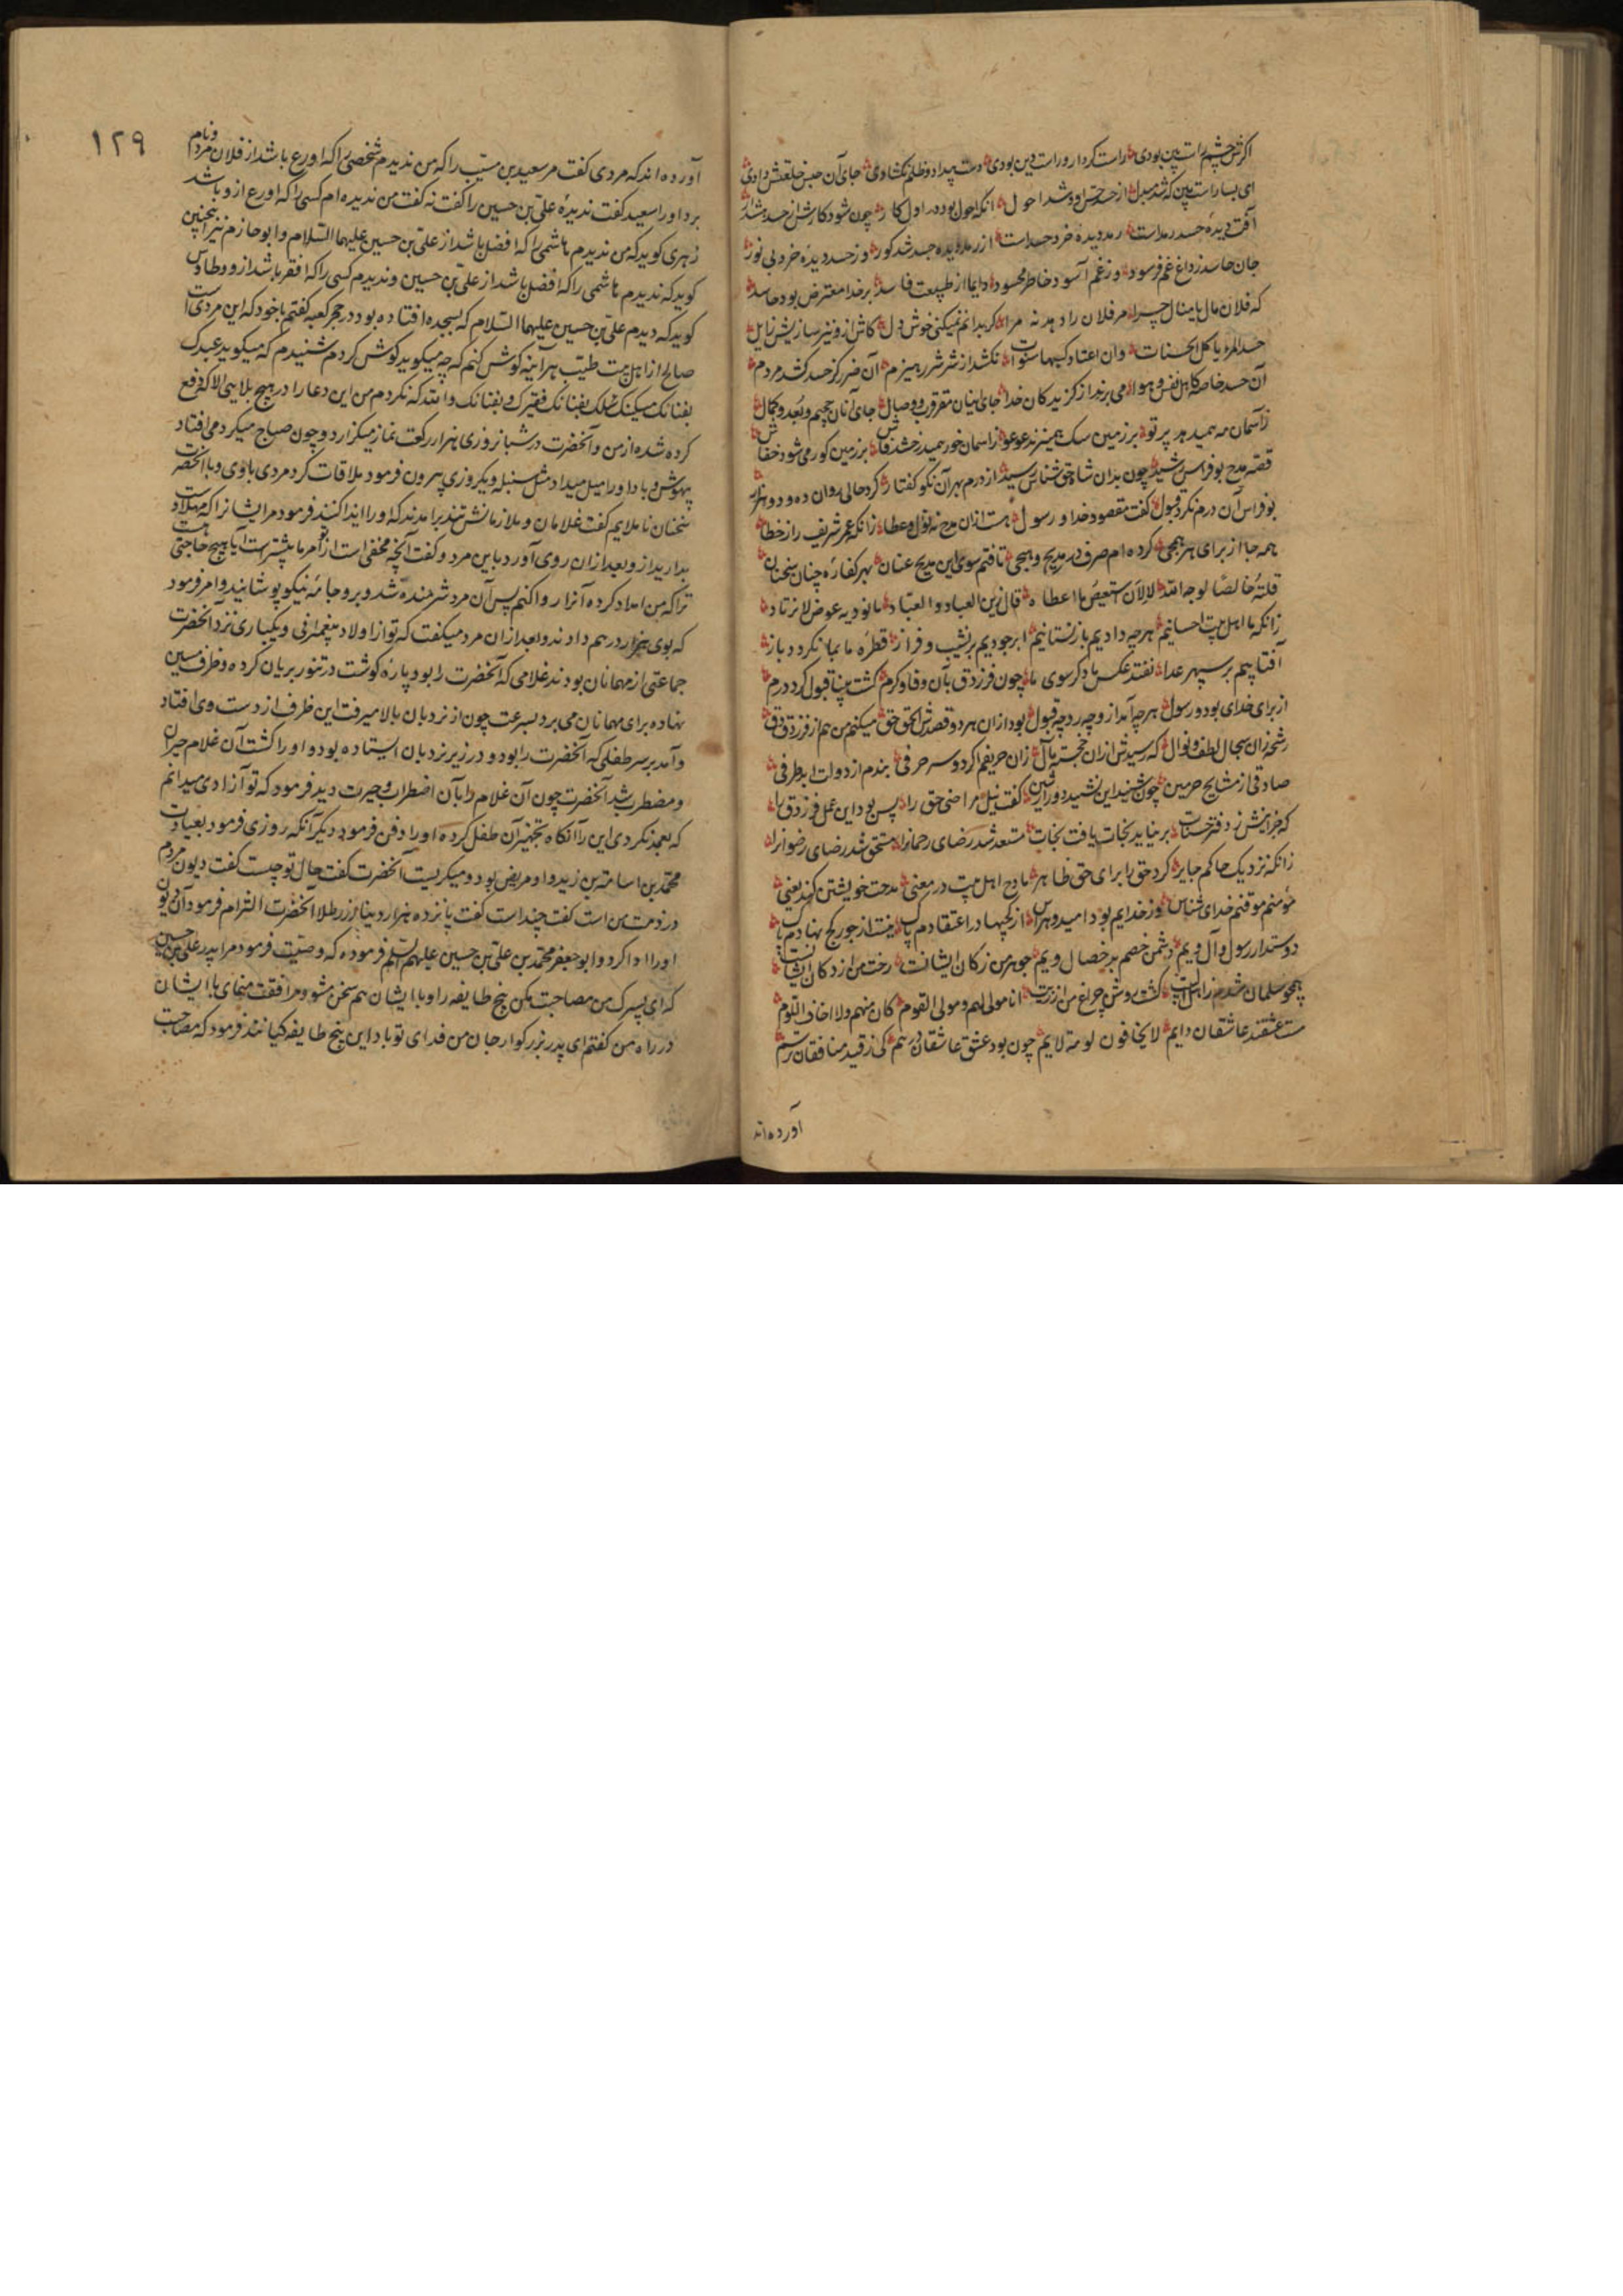 اکرش چشم راست بین بودی راست کردار و راست دین بودی دست بیداد و ظلم نکشادی جای آن حبس خلعتش دادی
ای بسا راست بین که شد مبدل از حد حس او شد احول آنکه احول بود در اول کار چون شود کارش از حسد
آفت دیدهٔ حسد رمدست رمد دیدهٔ خرد حسدست از رمد دیدهٔ حسد شد کور وز حسد دیدهٔ خرد بی نور
جان حاسد ز داغ غم فرسود وز غم آسوده خاطر محسود دایما از طبیعت فاسد بر خدا معترض بود حاسد
که فلان مال یا منال چرا مر فلان را دهد نه مرا کر بدانم نمیکنی خوش دل کاش ازو نیز سازیش زایل
حسد المرء یاکل الحسنات وان اعتاد کسبها سنوات نکشد از شرر شرر هیزم آن ضرر کز حسد کشد مردم
آن حسد خاصه کاهل نفس و هوا می برند از کزیدکان خدا جای اینان مقر قرب و وصال جای آنان جحیم و بعد و
ز آسمان مه همیدهد پرتو بر زمین سک همیزند عوعو ز اسمان خور همیدرخشد فاش بر زمین کور می شود خفاش
قصه مدح بوفراس رشید چون بدان شاه حق شناس رسید از درم بهر آن نکو کفتار کرد حالی روان ده و دو هزار
بوفراس آن درم نکرد قبول کفت مقصود خدا و رسول هست ازان مدح نه نوال و عطا زانکه عمر شریف را ز خطا
همه جا از برای هر همجی کرده ام صرف در مدیح و هجی تافتم سوی این مدیح عنان بهر کفارهٔ چنان سخنان
قلتهٔ خالصا لوجه الله لا لان استعیض ما اعطاه قال زین العباد و العباد ما نودیه عوض لا نرتاد
زانکه ما اهل بیت احسانیم هر چه دادیم باز نستانیم ابر جودیم بر نشیب و فراز قطره ما بما نکردد باز
آفتابیم بر سپهر علا نفتد عکس ما دکر سوی ما چون فرزدق بآن وفا و کرم کشت بینا قبول کرد درم
از برای خدای بود و رسول هر چه آمد ازو چه رد چه قبول بود ازان هر دو قصدش الحق حق میکنم من هم از فرزدق دق
رشحه زان سجال لطف و نوال که رسیدش ازان خجسته مآل زان حریفم اکر دو سه حرفی بندم از دولت ابد طرفی
صادقی از مشایخ حرمین چون شنید این نشید دور از شین کفت نیل مراضی حق را پس بود این عمل فرزدق را
که جز اینش ز دفتر حسنات بر نیاید نجات یافت نجات مستعد شد رضای رحمانرا مستحق شد ریاض رضوانرا
زانکه نزدیک حاکم جایر کرد حق را برای حق ظاهر مادح اهل بیت در معنی مدحت خویشتن کند یعنی
مؤمنم موقنم خدای شناس وز خدایم بود امید و هراس از کجیها در اعتقادم پاک نیست از جور کج نهادم باک
دوستدار رسول و آل ویم دشمن خصم بد خصال ویم جوهر من ز کان ایشانست رخت من از دکان ایشانست
همچو سلمان شدم ز اهل البیت کشت روشن چراغ من از زیت انا مولی لهم و مولی القوم کان منهم و لا اخاف اللوم
مست عشقند عاشقان دایم لا یخافون لومة لایم چون بود عشق عاشقان رسم کی ز قید منافقان ترسم
آورده اند
۱۲۹
آورده اند که مردی کفت مر سعید بن مسیب را که من ندیدم شخصی را که اورع باشد از فلان مردم و نام
برد او را سعید کفت ندیدهٔ علی بن حسین را کفت نه کفت من ندیده ام کسی را که اورع ازو باشد
زهری کوید که من ندیدم هاشمی را که افضل باشد از علی بن حسین علیهما السلام و ابو حازم نیز همچنین
کوید که ندیدم هاشمی را که افضل باشد از علی بن حسین و ندیدم کسی را که افقر باشد ازو و طاوس
کوید که دیدم علی بن حسین علیهما السلام که بسجده افتاده بود در حجر کعبه کفتم با خود که این مردی است
صالح از اهل بیت طیب هر آینه کوش کنم که چه میکوید کوش کردم شنیدم که میکوید عبدک
بفنائک مسکینک سائلک بفنائک فقیرک بفنائک والله که نکردم من این دعا را در هیچ بلائی الا که دفع
کرده شد از من و آنحضرت در شبانروزی هزار رکعت نماز میکزارد و چون صباح میکرد می افتاد
بیهوش و باد او را میل میداد مثل سنبله و یکروزی بیرون فرمود ملاقات کرد مردی با وی و با آنحضرت
سخنان نا ملایم کفت غلامان و ملازمانش تند برامدند که او را ایذا کنند فرمود مر ایشانرا که مهلا و
بدارید ازو بعد ازان روی آورد باین مرد و کفت آنچه مخفی است از تو از امر ما بیشترست آیا هیچ حاجتی هست
ترا که من امداد کرده آنرا روا کنم پس آن مرد شرمنده شد و برو جامهٔ نیکو پوشانید و امر فرمود
که بوی هزار درهم دادند و بعد ازان مرد میکفت که تو از اولاد پیغمبرانی و یکباری نزد آنحضرت
جماعتی از مهمانان بودند غلامی که آنحضرت را بود پاره کوشت در تنور بریان کرده و ظرف مسین
نهاده برای مهمانان می برد بسرعت چون از نردبان بالا میرفت این ظرف از دست وی افتاد
و آمد بر سر طفلی که آنحضرت را بود و در زیر نردبان ایستاده بود و او را کشت آن غلام حیران
و مضطرب شد آنحضرت چون آن غلام را بآن اضطراب و حیرت دید فرمود که تو آزادی میدانم
که بعمد نکردی این را آنکاه تجهیز آن طفل کرده او را دفن فرمود دیکر آنکه روزی فرمود بعیادت
محمد بن اسامة بن زید و او مریض بود و میکریست آنحضرت کفت حال تو چیست کفت دیون مردم
در ذمت من است کفت چند است کفت پانزده هزار دینار زر طلا آنحضرت التزام فرمود آن دیون
او را ادا کرد و ابو جعفر محمد بن علی بن حسین علیهم السلم فرموده که وصیت فرمود مرا پدر علی بن حسین
که ای پسرک من مصاحبت مکن پنج طایفه را و با ایشان هم سخن مشو و مرافقت منمای با ایشان
در راه من کفتم ای پدر بزرکوار جان من فدای تو باد این پنج طایفه کیانند فرمود که مصاحبت